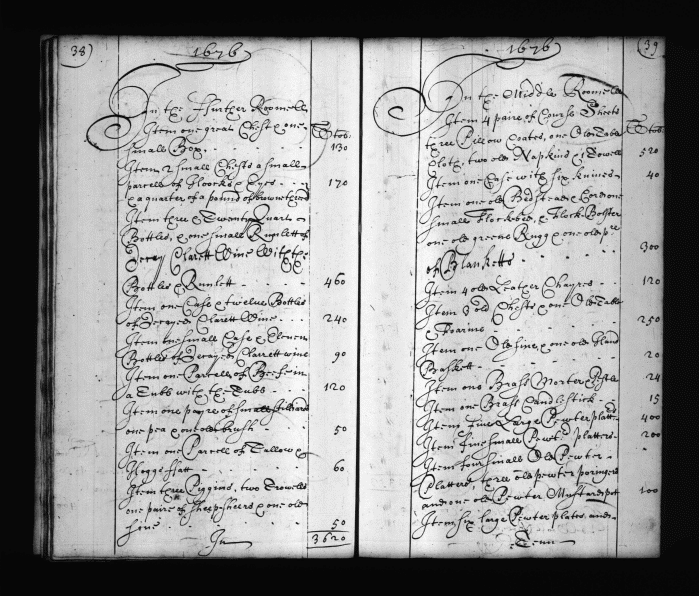 38)
1676
In the Further Roome
Item one great Chest & one
Tob:
small Box
130
Item 2 small Chests a small
parcell of Hookes & Eyes
170
& a quarter of a pound of browne thred
Item three & Twenty Quart
Bottles, & one small Runlett of
Decay Clarett Wine With the
Bottles & Runlett
460
Item one Case & twelve Bottles
of Decayed Clarett Wine
240
Item one small Case & Eleven
Bottles of Decayed Clarett wine
90
Item one Parcell of Beefe in
a Tubb with the Tubb
120
Item one payre of small stillards
one pea & one old brush
50
Item one Parcell of Tallow &
Hoggs fatt
60
Item three Piggins, two Trowells
one paire of sheep sheers & one old
50
In
3620
1676
39
In the Middle Roome
Item 4 paire of Course Sheets
Tob:
three Pillow Coates, one Old Table
Cloth, two old Napkins 1 Towell
520
Item one Case with six knives
40
Item one old Bedstead & Cord one
small flockbed, & flock Bolster
one old greene Rugg & one old pr
of Blanketts
300
Item 4 old Leather Chayres
120
Item 3 old Chests & one Old Table
& foarme
250
Item one Old sive & one old Hand
Baskett
20
Item one Brass Morter & Pestle
24
Item one Brass Candlestick
15
Item five Large Pewter platt
400
Item five small Pewt platters
200
Item four small Old Pewter
Platters three old pewter poringers
and one old Pewter Mustard pot
100
Item six large Pewter plates and
Tenn